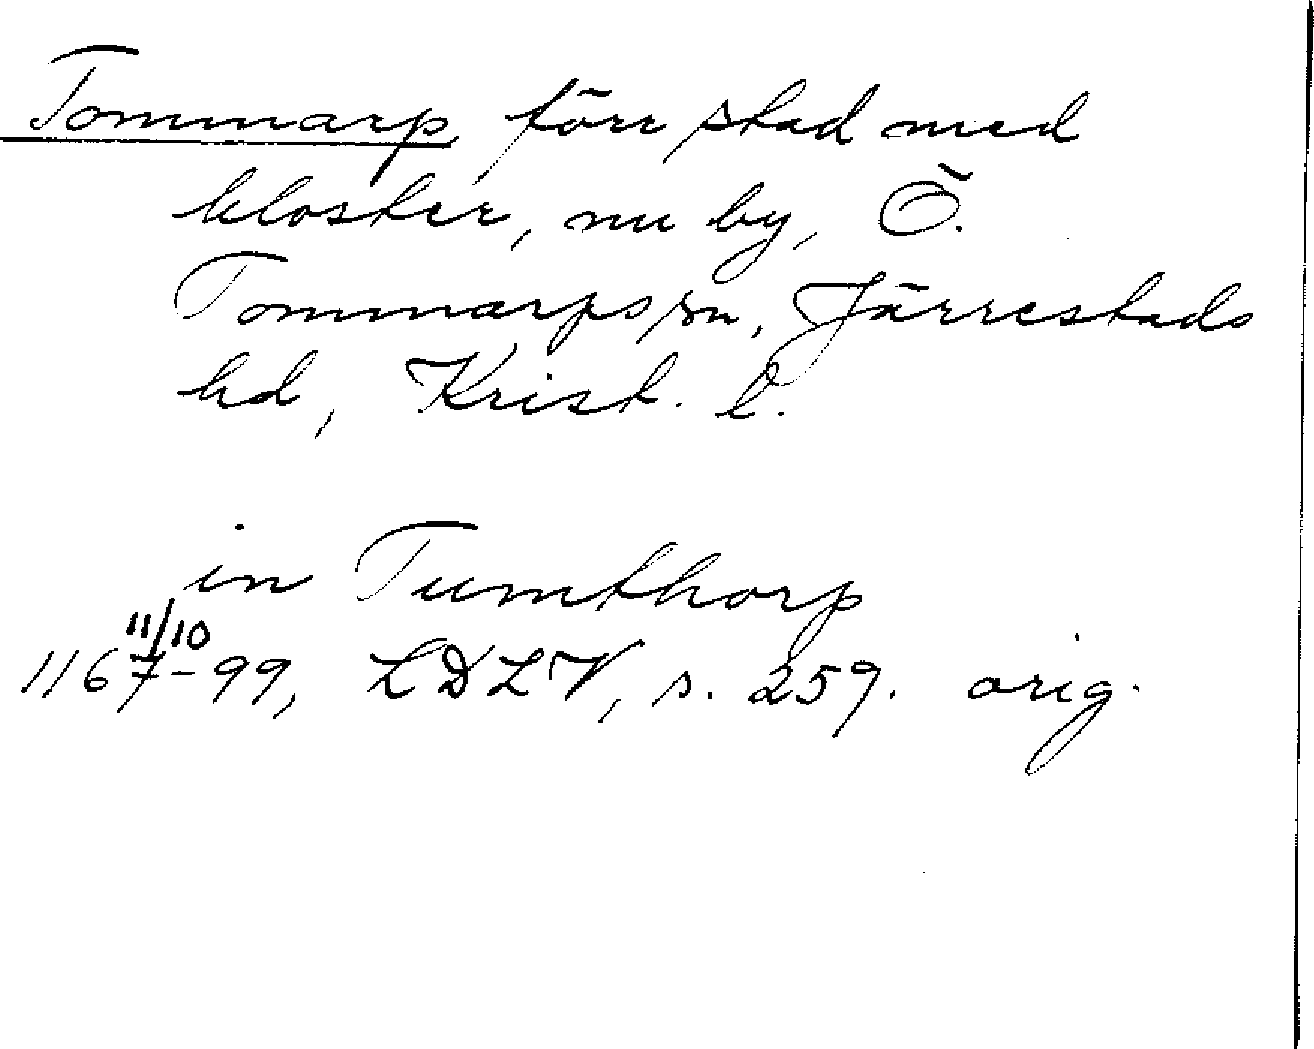 Tommarp, förr stad med
kloster, nu by, Ö.
Tommarps sn, Järrestads
hd, Krist. l.
in Tumthorp
11/10
1167-99, LDLV, s. 259. orig.